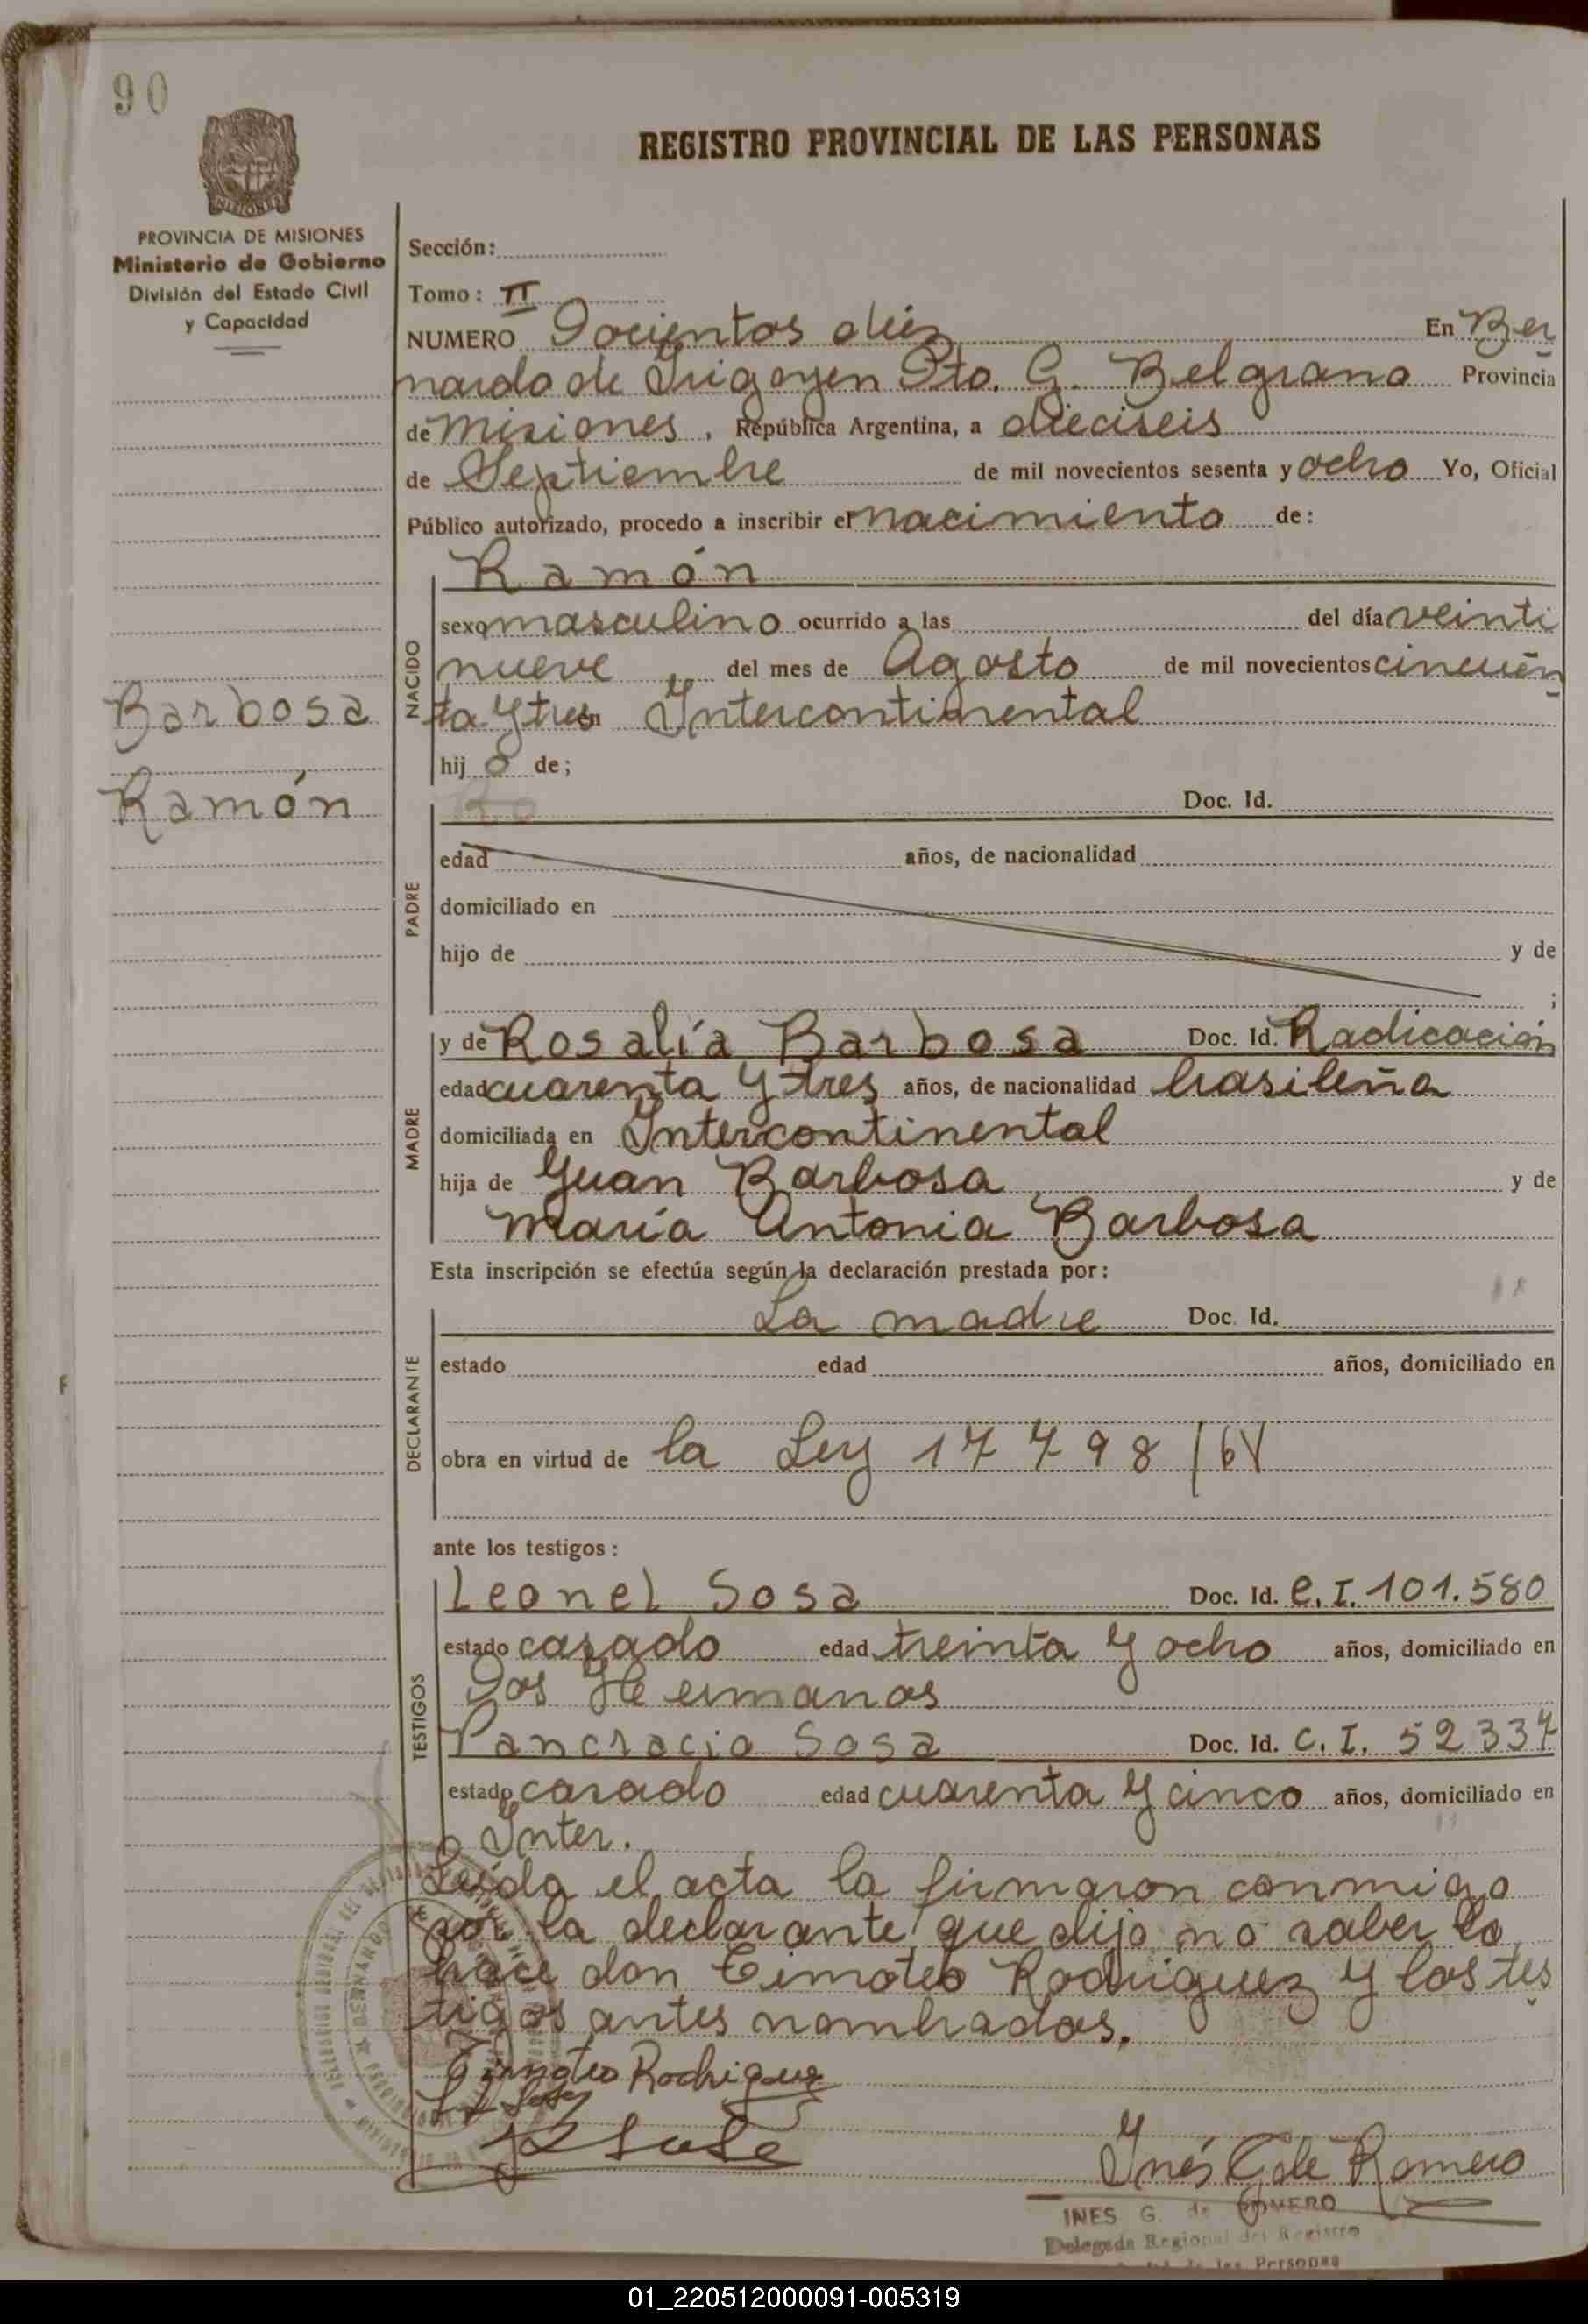 90
REGISTRO PROVINCIAL DE LAS PERSONAS
PROVINCIA DE MISIONES
Ministerio de Gobierno
División del Estado Civil
y Capacidad
Sección:
Tomo: II
NUMERO Docientos diéz En Ber
nardo de Irigoyen Dto. G. Belgrano Provincia
de Misiones, República Argentina, a dieciseis
de Septiembre de mil novecientos sesenta y ocho Yo, Oficial
Público autorizado, procedo a inscribir el nacimiento de:
Ramón
NACIDO
sexo masculino ocurrido a las del día veinti
nueve del mes de Agosto de mil novecientos cincuen
ta y tres Intercontinental
hij o de;
Barbosa
Ramón
Doc. Id.
PADRE
edad años, de nacionalidad
domiciliado en
hijo de y de
;
MADRE
y de Rosalía Barbosa Doc. Id. Radicación
edad cuarenta y tres años, de nacionalidad brasileña
domiciliada en Intercontinental
hija de Juan Barbosa y de
María Antonia Barbosa
Esta inscripción se efectúa según la declaración prestada por:
La madre Doc. Id.
DECLARANTE
estado edad años, domiciliado en
obra en virtud de la Ley 17798/68
ante los testigos:
TESTIGOS
Leonel Sosa Doc. Id. C.I. 101.580
estado casado edad treinta y ocho años, domiciliado en
Dos Hermanas
Pancracio Sosa Doc. Id. C.I. 52337
estado casado edad cuarenta y cinco años, domiciliado en
Inter.
Leída el acta la firmaron conmigo
por la declarante que dijo no saber lo
hace don Timoteo Rodriguez y los tes
tigos antes nombrados.
Timoteo Rodriguez
Inés G de Romero
INES G. de ROMERO
Delegada Regional del Registro
de las Personas
01_220512000091-005319